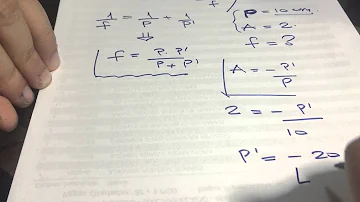 1/f = 1/p + 1/p'
⇓
f = p.p'/p+p'
p = 10 cm.
A = 2.
f = ?
A = -p'/p
2 = -p'/10
p' = - 20